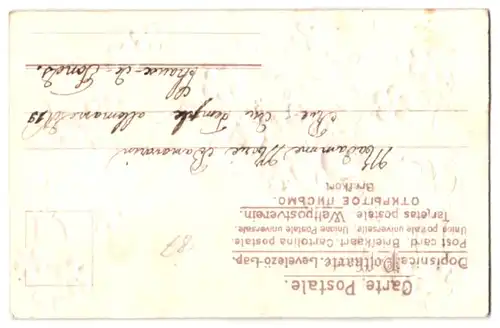 Carte Postale.
Dopisnica. Postkarte. Levelező-Lap.
Post card. Briefkaart. Cartolina postale.
Union postale universelle. Unione Postale universale.
Tarjetas postale. Weltpostverein.
ОТКРЫТОЕ ПИСЬМО.
Brefkort.
87
Madamme Marie
Rue, du Temple allemande 19
Chaux-de-Fonds.